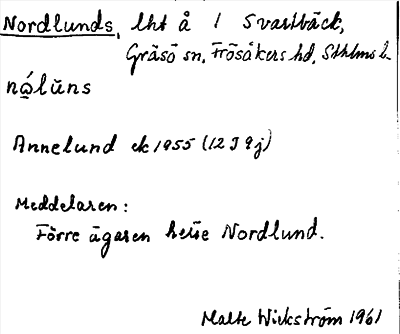 Nordlunds, lht å 1 Svartbäck,
Gräsö sn, Frösåkers hd, Sthlms l.
nǫ́lŭns
Annelund ek 1955 (12J9j)
Meddelaren:
Förre ägaren hette Nordlund.
Malte Wickström 1961